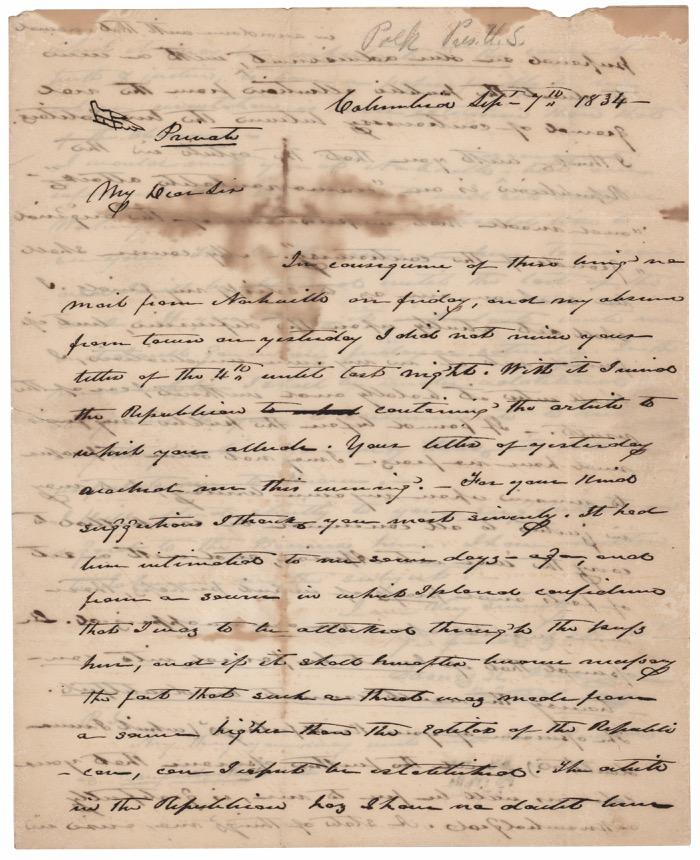 Polk Pres. U.S.
Columbia Sept. 7th 1834 —
Private
My Dear Sir
In consequence of there being no
mail from Nashville on friday, and my absence
from town on yesterday I did not receive your
letter of the 4th until last night. With it I received
the Republican to containing the article to
which you allude. Your letter of yesterday
reached me this evening. — For your kind
suggestions I thank you most sincerely. It had
been intimated to me some days ago, and
from a source in which I placed confidence
that I was to be attacked through the press
here, and if it shall hereafter become necessary
the fact that such a threat was made from
a source higher than the Editor of the Republi
- can, can I expect be established. The article
in the Republican has I have no doubt been